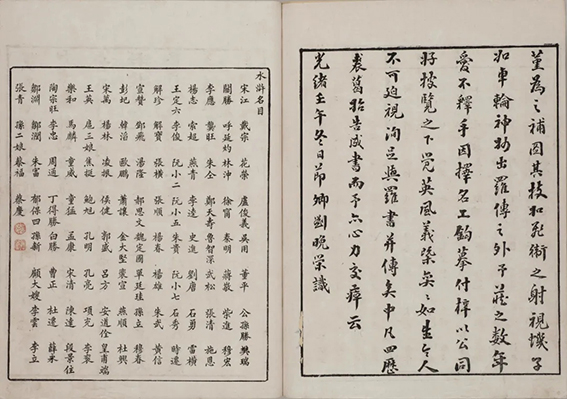 菫為之補因其技如飛衛之射視蟣子
如車輪神妙出羅傳之外予藏之數年
愛不釋手因擇名工鈎摹付梓以公同
好披覽之下覺英風義槩奕〻如生令人
不可迫視洵足與羅書并傳矣中凡四歷
裘葛始告成書而予亦心力交瘁云
光緒壬午冬日節卿劉晚榮識
水滸名目
宋江 戴宗 花榮 盧俊義 吳用 董平 公孫勝 樊瑞
關勝 呼延灼 林沖 徐甯 秦明 蔣敬 柴進 穆宏
李應 龔旺 朱仝 鄭天壽 魯智深 武松 張清 施恩
楊志 索超 燕青 李逵 史進 劉唐 雷橫
王定六 李俊 阮小二 阮小五 朱貴 阮小七 石秀 時遷
解珍 解寶 張橫 張順 楊春 楊雄 朱武 黃信
宣贊 鄧飛 湯隆 郝思文 魏定國 單廷珪 孫立 穆春
彭玘 韓滔 歐鵬 蕭讓 金大堅 裴宣 燕順 杜興
宋萬 楊林 凌振 侯健 郭盛 呂方 安道全 皇甫端
王英 扈三娘 焦挺 鮑旭 孔明 孔亮 項充 李袞
樂和 馬麟 童威 童猛 孟康 宋清 陳達 段景住
陶宗旺 李忠 周通 丁得勝 白勝 曹正 杜遷 薛永
鄒淵 鄒潤 朱富 郁保四 孫新 顧大嫂 李雲 李立
張青 孫二娘 蔡福 蔡慶